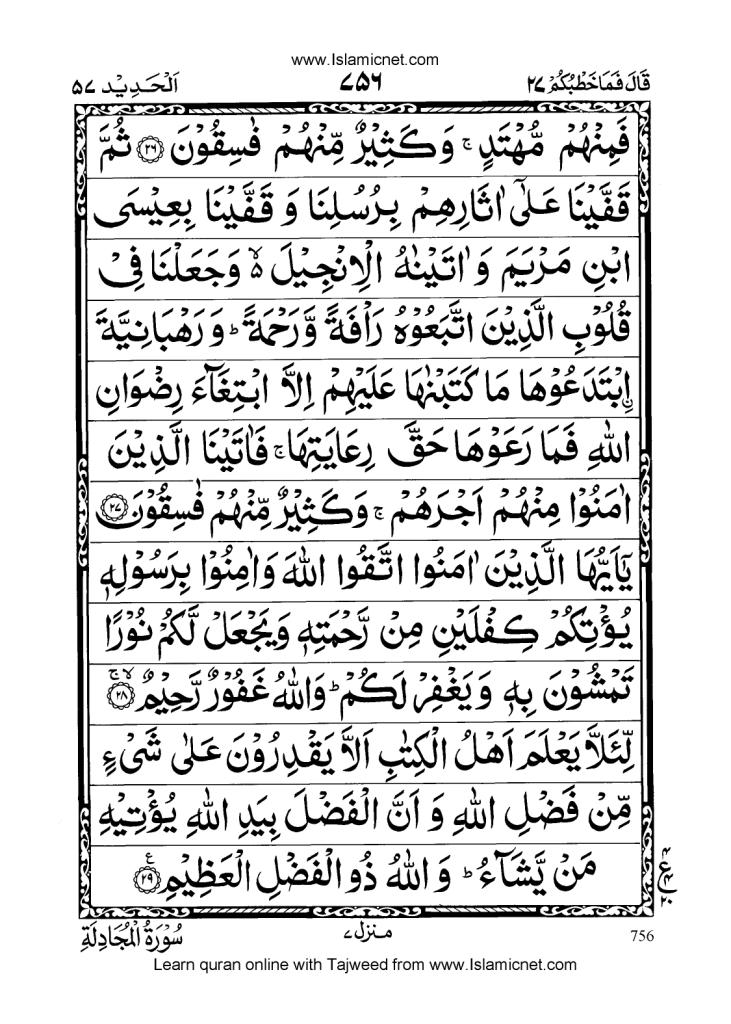 www.Islamicnet.com
قَالَ فَمَا خَطْبُكُمْ ٢٧
٧٥٦
اَلْحَدِيْد ٥٧
فَمِنْهُمْ مُّهْتَدٍ ۚ وَكَثِيْرٌ مِّنْهُمْ فٰسِقُوْنَ ﴿٢٦﴾ ثُمَّ
قَفَّيْنَا عَلٰٓى اٰثَارِهِمْ بِرُسُلِنَا وَ قَفَّيْنَا بِعِيْسَى
ابْنِ مَرْيَمَ وَ اٰتَيْنٰهُ الْاِنْجِيْلَ ەۙ وَجَعَلْنَا فِىْ
قُلُوْبِ الَّذِيْنَ اتَّبَعُوْهُ رَاْفَةً وَّرَحْمَةً ؕ وَ رَهْبَانِيَّةَ
اِ۟بْتَدَعُوْهَا مَا كَتَبْنٰهَا عَلَيْهِمْ اِلَّا ابْتِغَآءَ رِضْوَانِ
اللّٰهِ فَمَا رَعَوْهَا حَقَّ رِعَايَتِهَا ۚ فَاٰتَيْنَا الَّذِيْنَ
اٰمَنُوْا مِنْهُمْ اَجْرَهُمْ ۚ وَكَثِيْرٌ مِّنْهُمْ فٰسِقُوْنَ ﴿٢٧﴾
يٰۤاَيُّهَا الَّذِيْنَ اٰمَنُوا اتَّقُوا اللّٰهَ وَاٰمِنُوْا بِرَسُوْلِهٖ
يُؤْتِكُمْ كِفْلَيْنِ مِنْ رَّحْمَتِهٖ وَيَجْعَلْ لَّكُمْ نُوْرًا
تَمْشُوْنَ بِهٖ وَيَغْفِرْ لَكُمْ ؕ وَاللّٰهُ غَفُوْرٌ رَّحِيْمٌ ﴿٢٨﴾ ۙۚ
لِّئَلَّا يَعْلَمَ اَهْلُ الْكِتٰبِ اَلَّا يَقْدِرُوْنَ عَلٰى شَىْءٍ
مِّنْ فَضْلِ اللّٰهِ وَ اَنَّ الْفَضْلَ بِيَدِ اللّٰهِ يُؤْتِيْهِ
مَنْ يَّشَآءُ ؕ وَ اللّٰهُ ذُو الْفَضْلِ الْعَظِيْمِ ﴿٢٩﴾ ع
٤
ع ٤
٢٠
756
منزل ٧
سُوْرَةُ الْمُجَادِلَةِ
Learn quran online with Tajweed from www.Islamicnet.com